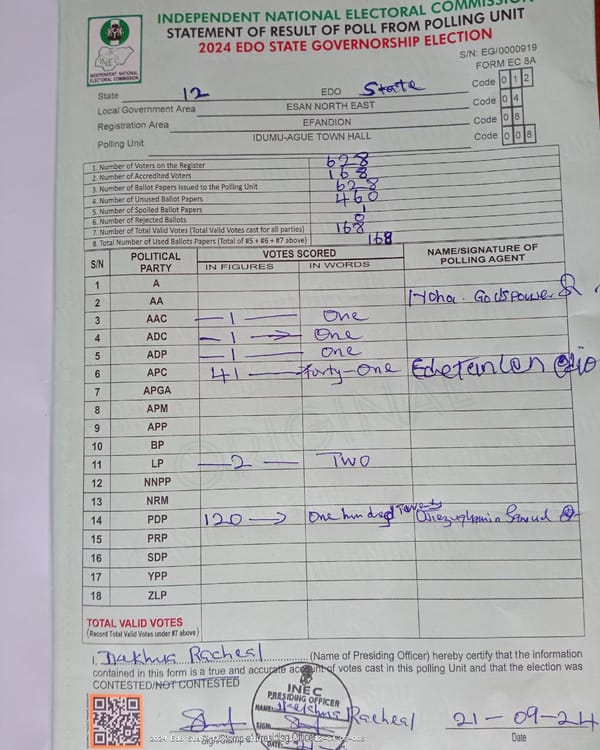 INDEPENDENT NATIONAL ELECTORAL COMMISSION
STATEMENT OF RESULT OF POLL FROM POLLING UNIT
2024 EDO STATE GOVERNORSHIP ELECTION
INEC
INDEPENDENT NATIONAL ELECTORAL COMMISSION
S/N: EG/0000919
FORM EC 8A
State 12 EDO State Code 0 1 2
Local Government Area ESAN NORTH EAST Code 0 4
Registration Area EFANDION Code 0 8
Polling Unit IDUMU-AGUE TOWN HALL Code 0 0 8
1. Number of Voters on the Register 628
2. Number of Accredited Voters 168
3. Number of Ballot Papers Issued to the Polling Unit 628
4. Number of Unused Ballot Papers 460
5. Number of Spoiled Ballot Papers 1
6. Number of Rejected Ballots 0
7. Number of Total Valid Votes (Total Valid Votes cast for all parties) 168
8. Total Number of Used Ballots Papers (Total of #5 + #6 + #7 above) 168
S/N POLITICAL PARTY VOTES SCORED NAME/SIGNATURE OF POLLING AGENT
IN FIGURES IN WORDS
1 A
2 AA Godspower
3 AAC 1 One
4 ADC 1 One
5 ADP 1 One
6 APC 41 Forty-One
7 APGA
8 APM
9 APP
10 BP
11 LP 2 TWO
12 NNPP
13 NRM
14 PDP 120 One hundred Twenty
15 PRP
16 SDP
17 YPP
18 ZLP
ORIGINAL
TOTAL VALID VOTES
(Record Total Valid Votes under #7 above)
I, Racheal (Name of Presiding Officer) hereby certify that the information
contained in this form is a true and accurate account of votes cast in this polling Unit and that the election was
CONTESTED/NOT CONTESTED
INEC
PRESIDING OFFICER
NAME:
SIGN:
DATE:
Racheal 21-09-24
Date